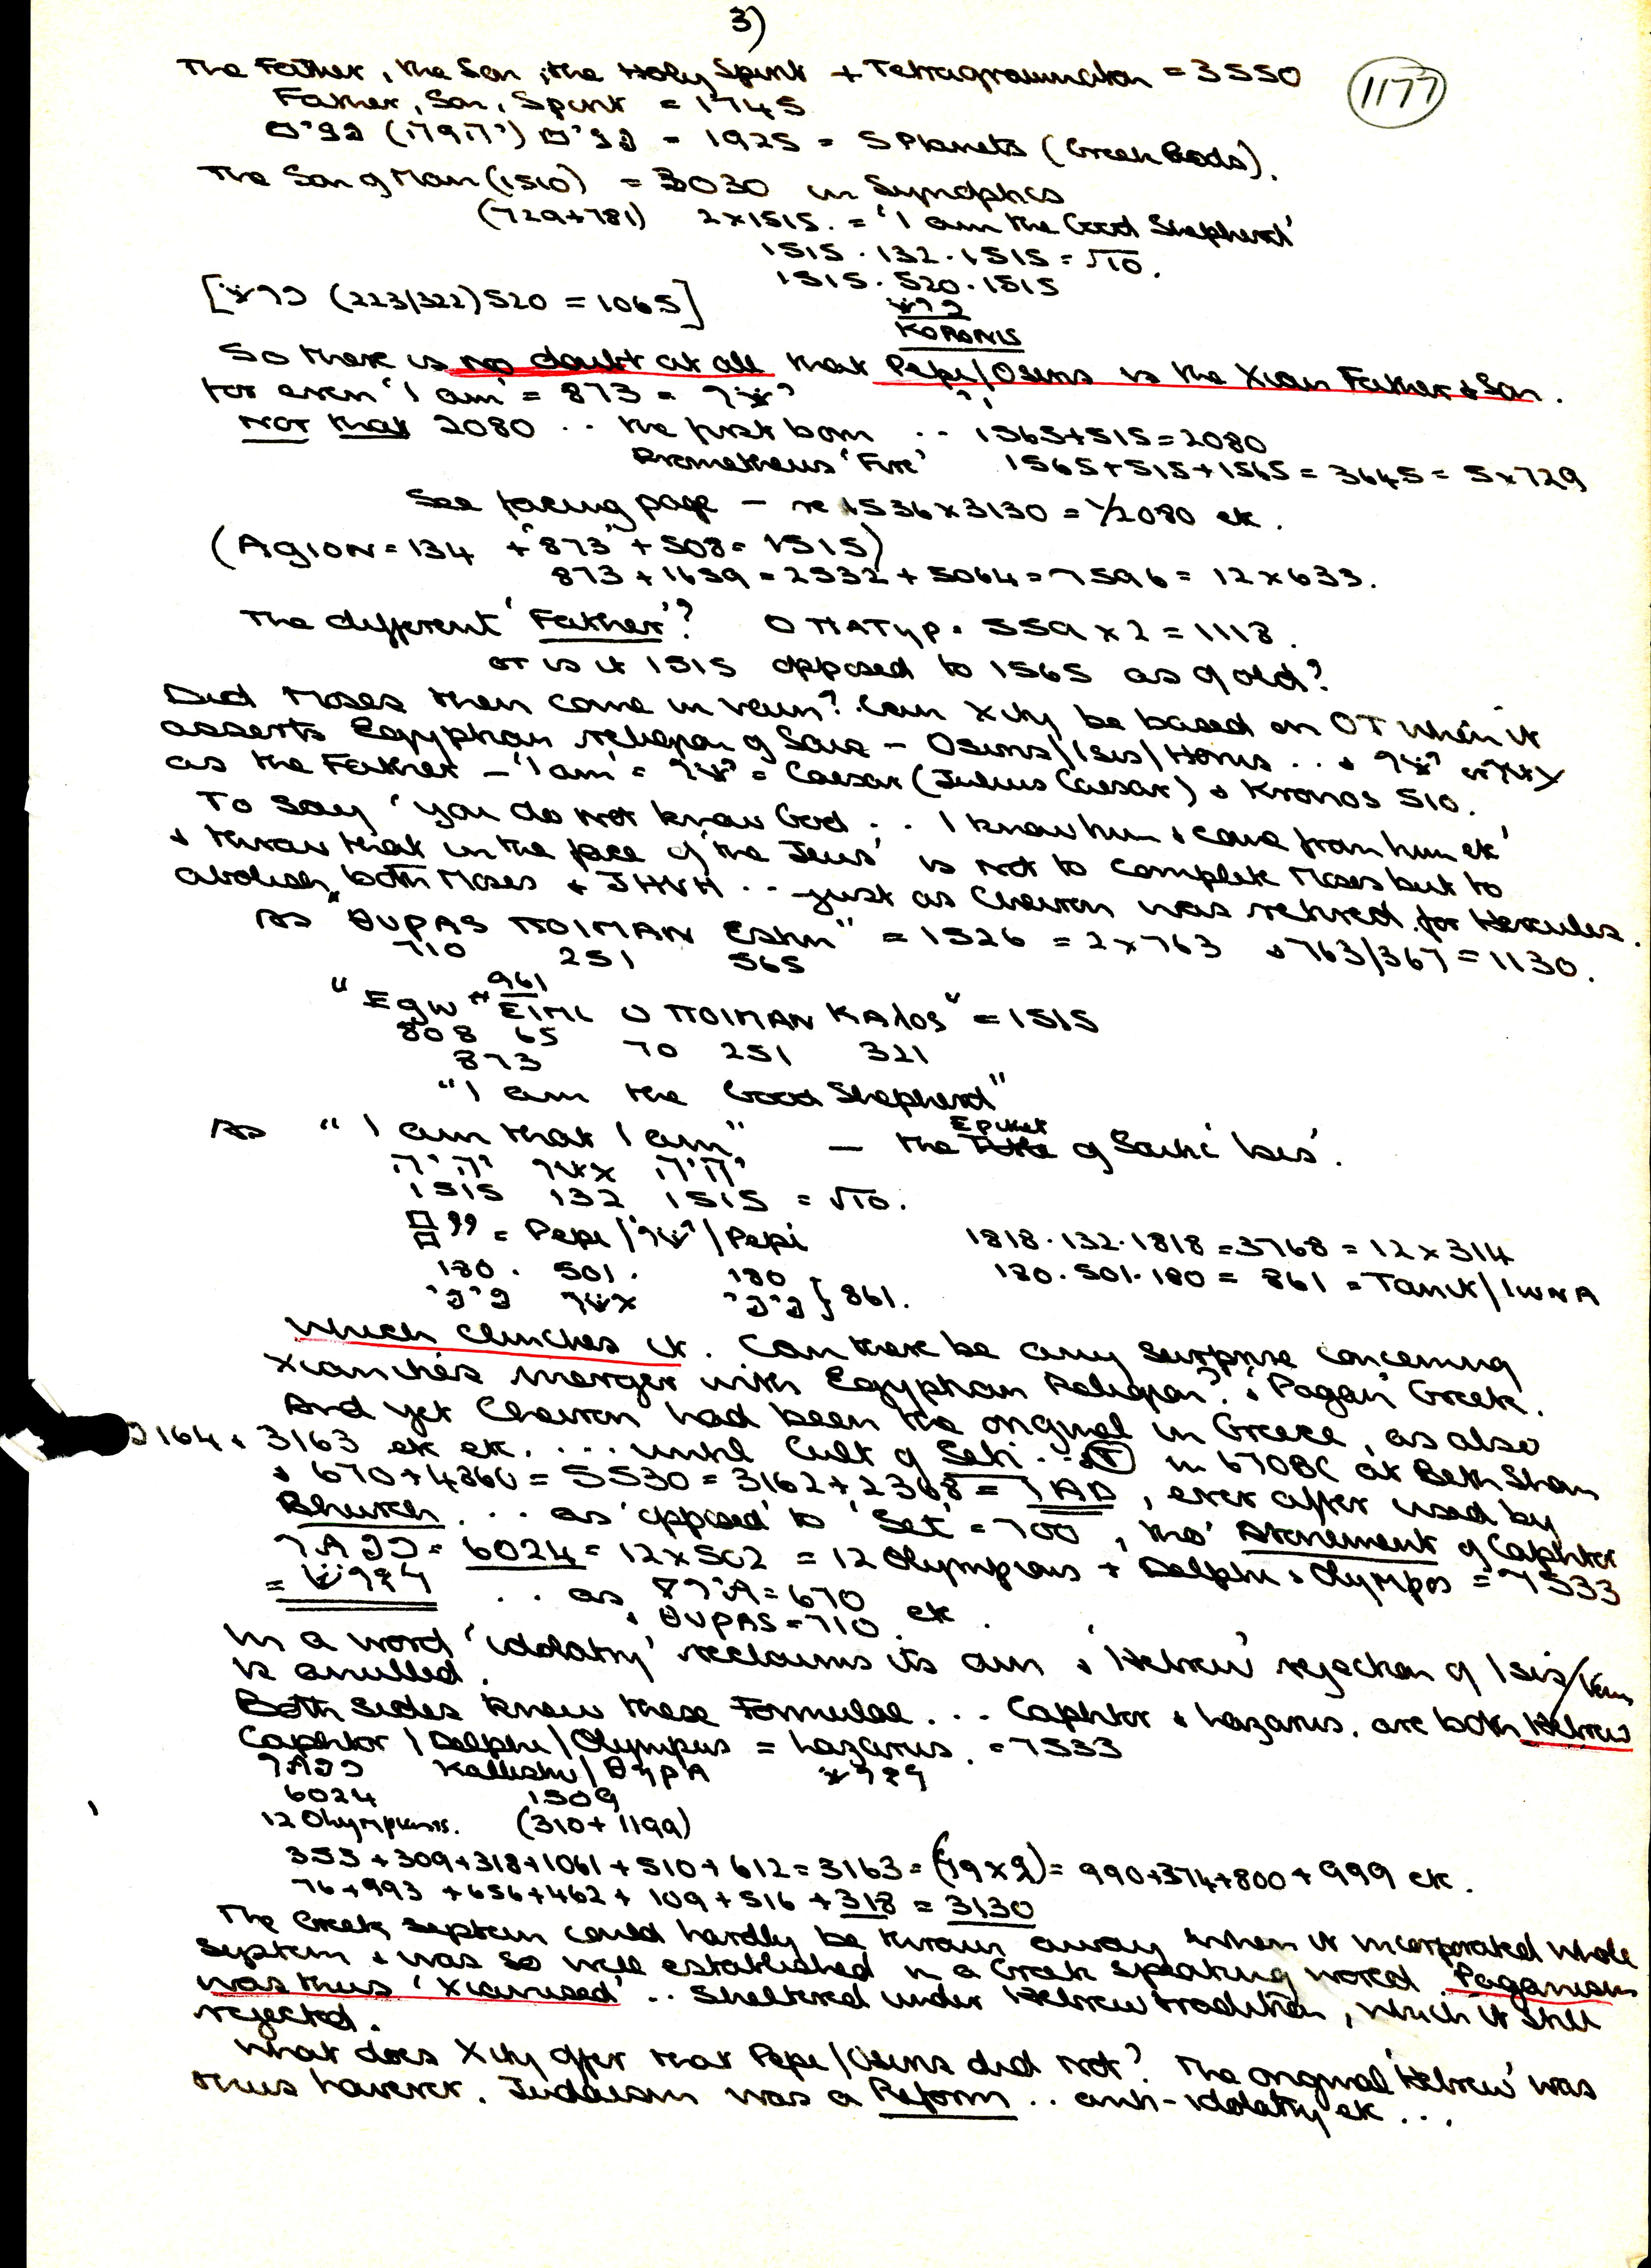 3)
The Father, the Son, the Holy Spirit + Tetragrammaton = 3550
1177
Father, Son, Spirit = 1745
פנים (יהוה) פנים = 1925 = 5 Planets (Greek Gods).
The Son of Man (1510) = 3030 in Synoptics
(729+781) 2×1515. = 'I am the Good Shepherd'
1515 · 132 · 1515 = √10.
1515 · 520 · 1515
[כרש (223/322) 520 = 1065]
כרש
KORONIS
So there is no doubt at all that Pepi/Osiris is the Xian Father & Son.
for even 'I am' = 873 =
Not that 2080 .. the first born .. 1565+515=2080
Prometheus 'Fire' 1565+515+1565 = 3645 = 5×729
See facing page — re 1536×3130 = 1/2080 etc.
(Agion = 134 + '873' + 508 = 1515)
873 + 1659 = 2532 + 5064 = 7596 = 12×633.
The different 'Father'? Ο ΠΑΤηρ = 559 × 2 = 1118.
or is it 1515 opposed to 1565 as of old?
Did Moses then come in vain? Can Xity be based on OT when it
asserts Egyptian religion of Sais — Osiris/Isis/Horus .. &
as the Father — 'I am' = = Caesar (Julius Caesar) & Kronos 510.
To say 'you do not know God .. I know him & came from him etc'
& throw that in the face of 'the Jews' is not to complete Moses but to
abolish both Moses & JHVH .. just as Cheiron was retired for Hercules.
As "ΘυΡΑS ΠΟΙΜΑΝ Estin" = 1526 = 2×763 & 763/367 = 1130.
710 251 565
961
"Egw EIMI O ΠΟΙΜΑΝ ΚΑλος" = 1515
808 65 70 251 321
873
"I am the Good Shepherd"
As "I am that I am" — the Epithet of Saitic Isis'.
יהיה אשר יהיה
1515 132 1515 = √10.
= Pepi / / Pepi 1818 · 132 · 1818 = 3768 = 12×314
180 · 501 · 180 180 · 501 · 180 = 861 = Tanit/IWNA
פיפי אשר פיפי } 861.
Which clinches it. Can there be any surprise concerning
Xianities merger with Egyptian Religion? & 'Pagan' Greek.
And yet Cheiron had been the original in Greece, as also
3164 & 3163 etc etc. ... until Cult of Seti .. in 670BC at Beth Shan
& 670+4860 = 5530 = 3162+2368 = , ever after used by
Church ... as opposed to 'Set' = 700, tho' Atonement of Caphtor
= 6024 = 12×502 = 12 Olympians + Delphi & Olympos = 7533
= .. as = 670
& ΘυΡΑS = 710 etc.
In a word 'idolatry' reclaims its own & 'Hebrew' rejection of Isis/
is anulled.
Both sides knew these Formulae ... Caphtor & Lazarus, are both Hebrew
Caphtor / Delphi / Olympus = Lazarus. = 7533
Kallistu / ΘηρΑ
6024 1509
12 Olympians. (310+1199)
355+309+318+1061+510+612 = 3163 = (79×2) = 990+374+800+999 etc.
76+993+656+462+109+516+318 = 3130
The Greek system could hardly be thrown away when it incorporated whole
system & was so well established in a Greek speaking world. Paganism
was thus 'Xianised' .. Sheltered under Hebrew tradition, which it still
rejected.
What does Xity offer that Pepi/Osiris did not? The original 'Hebrew' was
thus however. Judaism was a Reform .. anti-idolatry etc ...